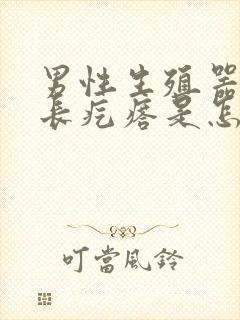 男性生殖器
长疙瘩是怎
叮當風鈴